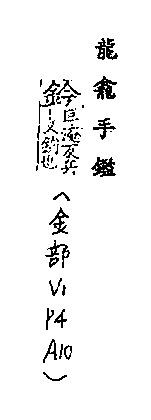 龍龕手鑑
鈐巨淹反兵
丨又鈎也
(金部V1P4A10)